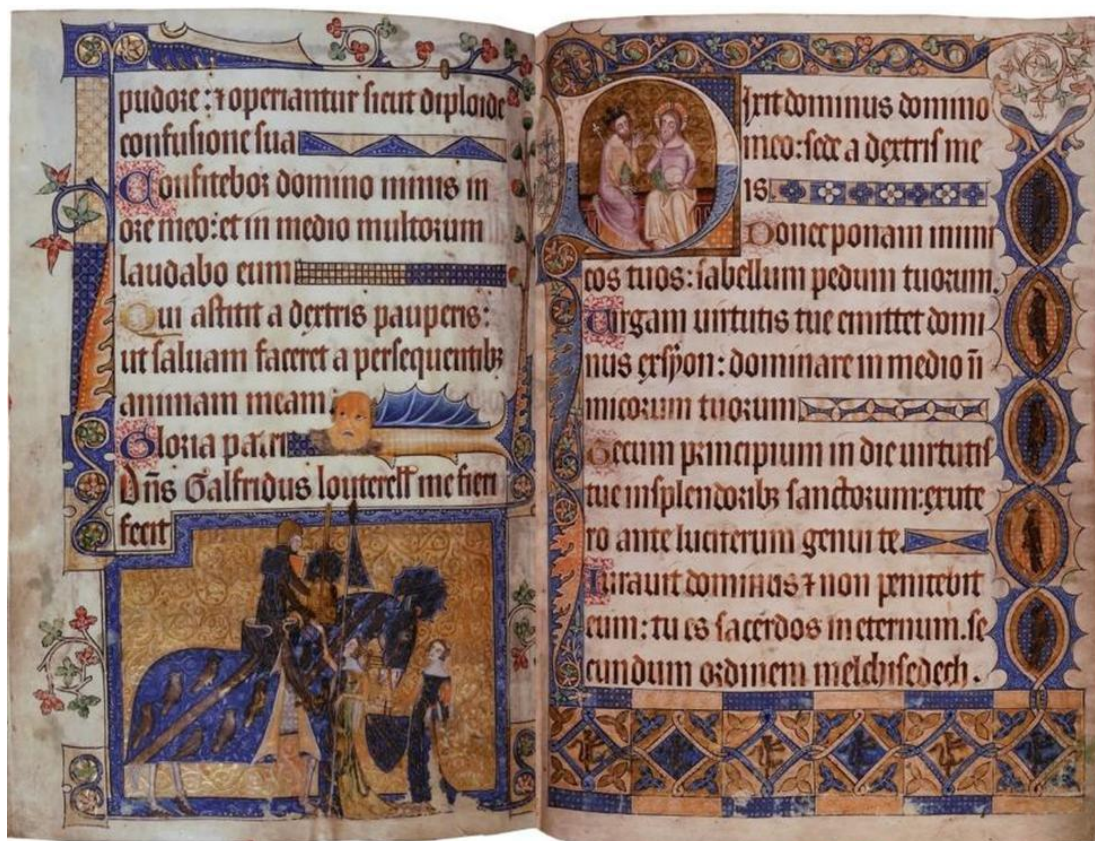 pudore: ⁊ operiantur sicut diploide
confusione sua
Confitebor domino nimis in
ore meo: et in medio multorum
laudabo eum
Qui astitit a dextris pauperis:
ut saluam faceret a persequentibꝫ
animam meam
Gloria patri
Dn̄s Galfridus louterell me fieri
fecit
Dixit dominus domino
meo: sede a dextris me
is
Donec ponam inimi
cos tuos: scabellum pedum tuorum.
Uirgam uirtutis tue emittet domi
nus ex syon: dominare in medio in̄
micorum tuorum
Tecum principium in die uirtutis
tue in splendoribꝫ sanctorum: ex ute
ro ante luciferum genui te.
Iurauit dominus ⁊ non penitebit
eum: tu es sacerdos in eternum. se
cundum ordinem melchisedech.